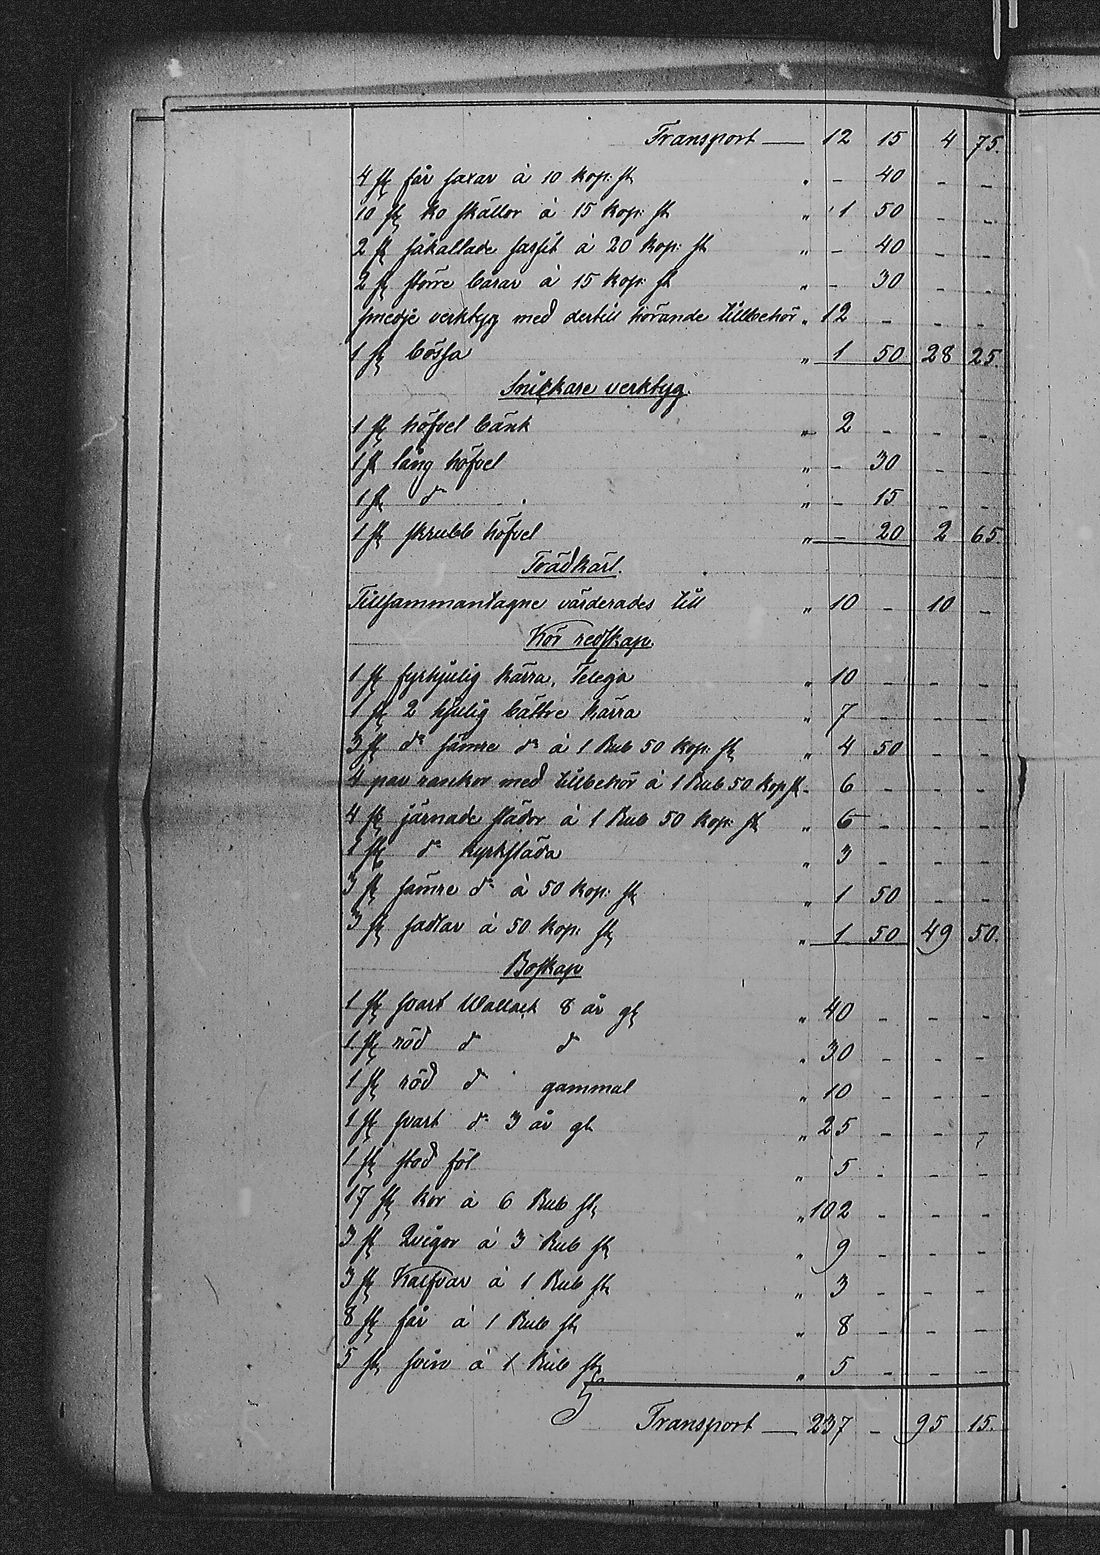 Transport — 12 15 4 75.
4 st får saxar à 10 kop: st " - 40 - -
10 st ko skällor à 15 kop: st " 1 50 - -
2 st såkallade à 20 kop: st " - 40 - -
2 st större bårar à 15 kop: st " - 30 - -
smedje verktyg med dertill hörande tillbehör " 12 - - -
1 st bössa " 1 50 28 25.
Snickare verktyg.
1 st höfvel bänk " 2 - - -
1 st lång höfvel " - 30 - -
1 st do " - 15 - -
1 st skrubb höfvel " - 20 2 65.
Trädkärl.
Tillsammantagne värderades till " 10 - 10 -
Kör redskap
1 st fyrhjulig kärra, Telega " 10 - - -
1 st 2 hjulig bättre kärra " 7 - - -
3 st do sämre do à 1 Rub 50 kop: st " 4 50 - -
4 par rankor med tillbehör à 1 Rub 50 kop st " 6 - - -
4 st järnade slädor à 1 Rub 50 kop: st " 6 - - -
1 st do kyrksläda " 3 - - -
3 st sämre do à 50 kop: st " 1 50 - -
3 st sadlar à 50 kop: st " 1 50 49 50.
Boskap
1 st svart Wallack 8 år gl " 40 - - -
1 st röd d d " 30 - - -
1 st röd do gammal " 10 - - -
1 st svart do 3 år gl " 25 - - -
1 st stod föl " 5 - - -
17 st kor à 6 Rub st " 102 - - -
3 st Qvigor à 3 Rub st " 9 - - -
3 st Kalfvar à 1 Rub st " 3 - - -
8 st får à 1 Rub st " 8 - - -
5 st svin à 1 Rub st " 5 - - -
Transport — 237 - 95 15.